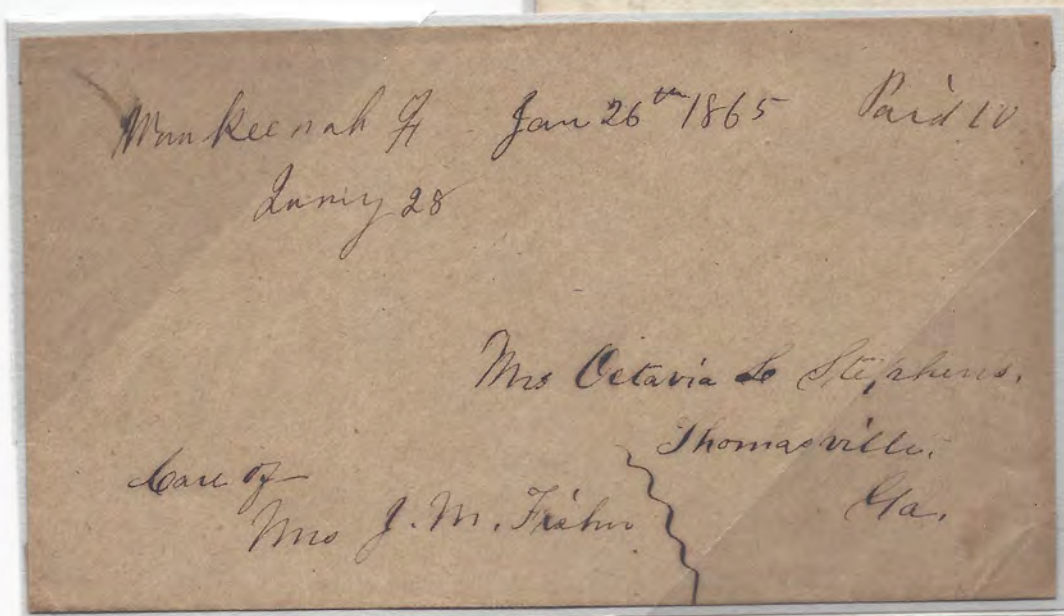 Waukeenah Fl Jan 26th 1865 Paid 10
28
Mrs Octavia L Stephens.
Thomasville.
Ga.
Care of
Mrs J. M. Fisher